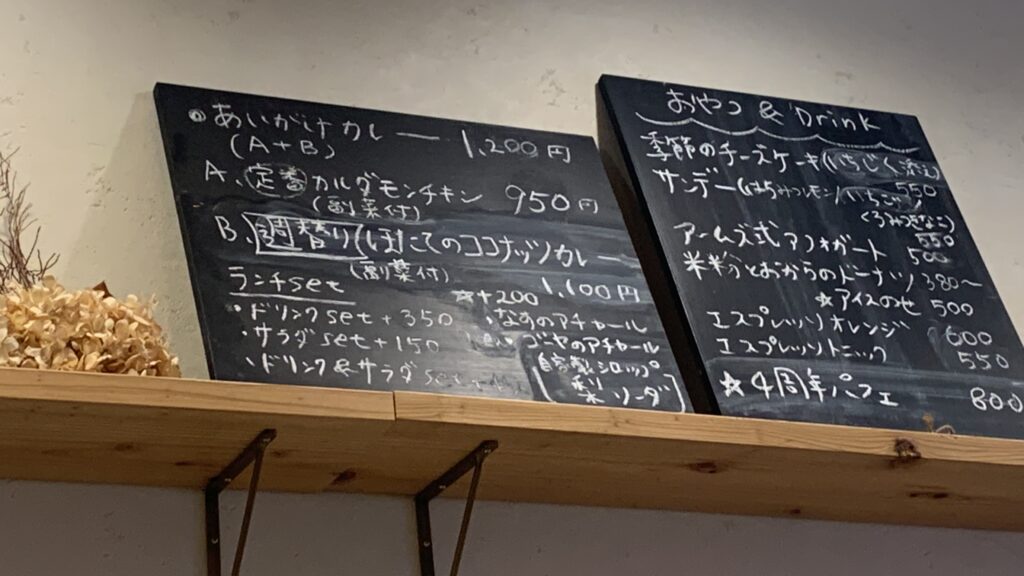 あいがけカレー 1,200円
(A+B)
A、定番 カルダモンチキン 950円
(副菜付)
B、日替り ほたてのココナッツカレー
(副菜付) 1,100円
ランチset
☆+200
・ドリンクset+350
・なすのアチャール
・サラダset+150
ゴーヤのアチャール
・ドリンク&サラダset
自家製シロップ
梨ソーダ
おやつ & Drink
季節のチーズケーキ(いちじく
サンデー(はちみつレモン/いちご/ 550
(くるみきなこ)
アームズ式アフォガート 500
米粉とおからのドーナツ 380〜
☆アイスのせ 500
エスプレッソオレンジ 600
エスプレッソトニック 550
☆4周年パフェ 800